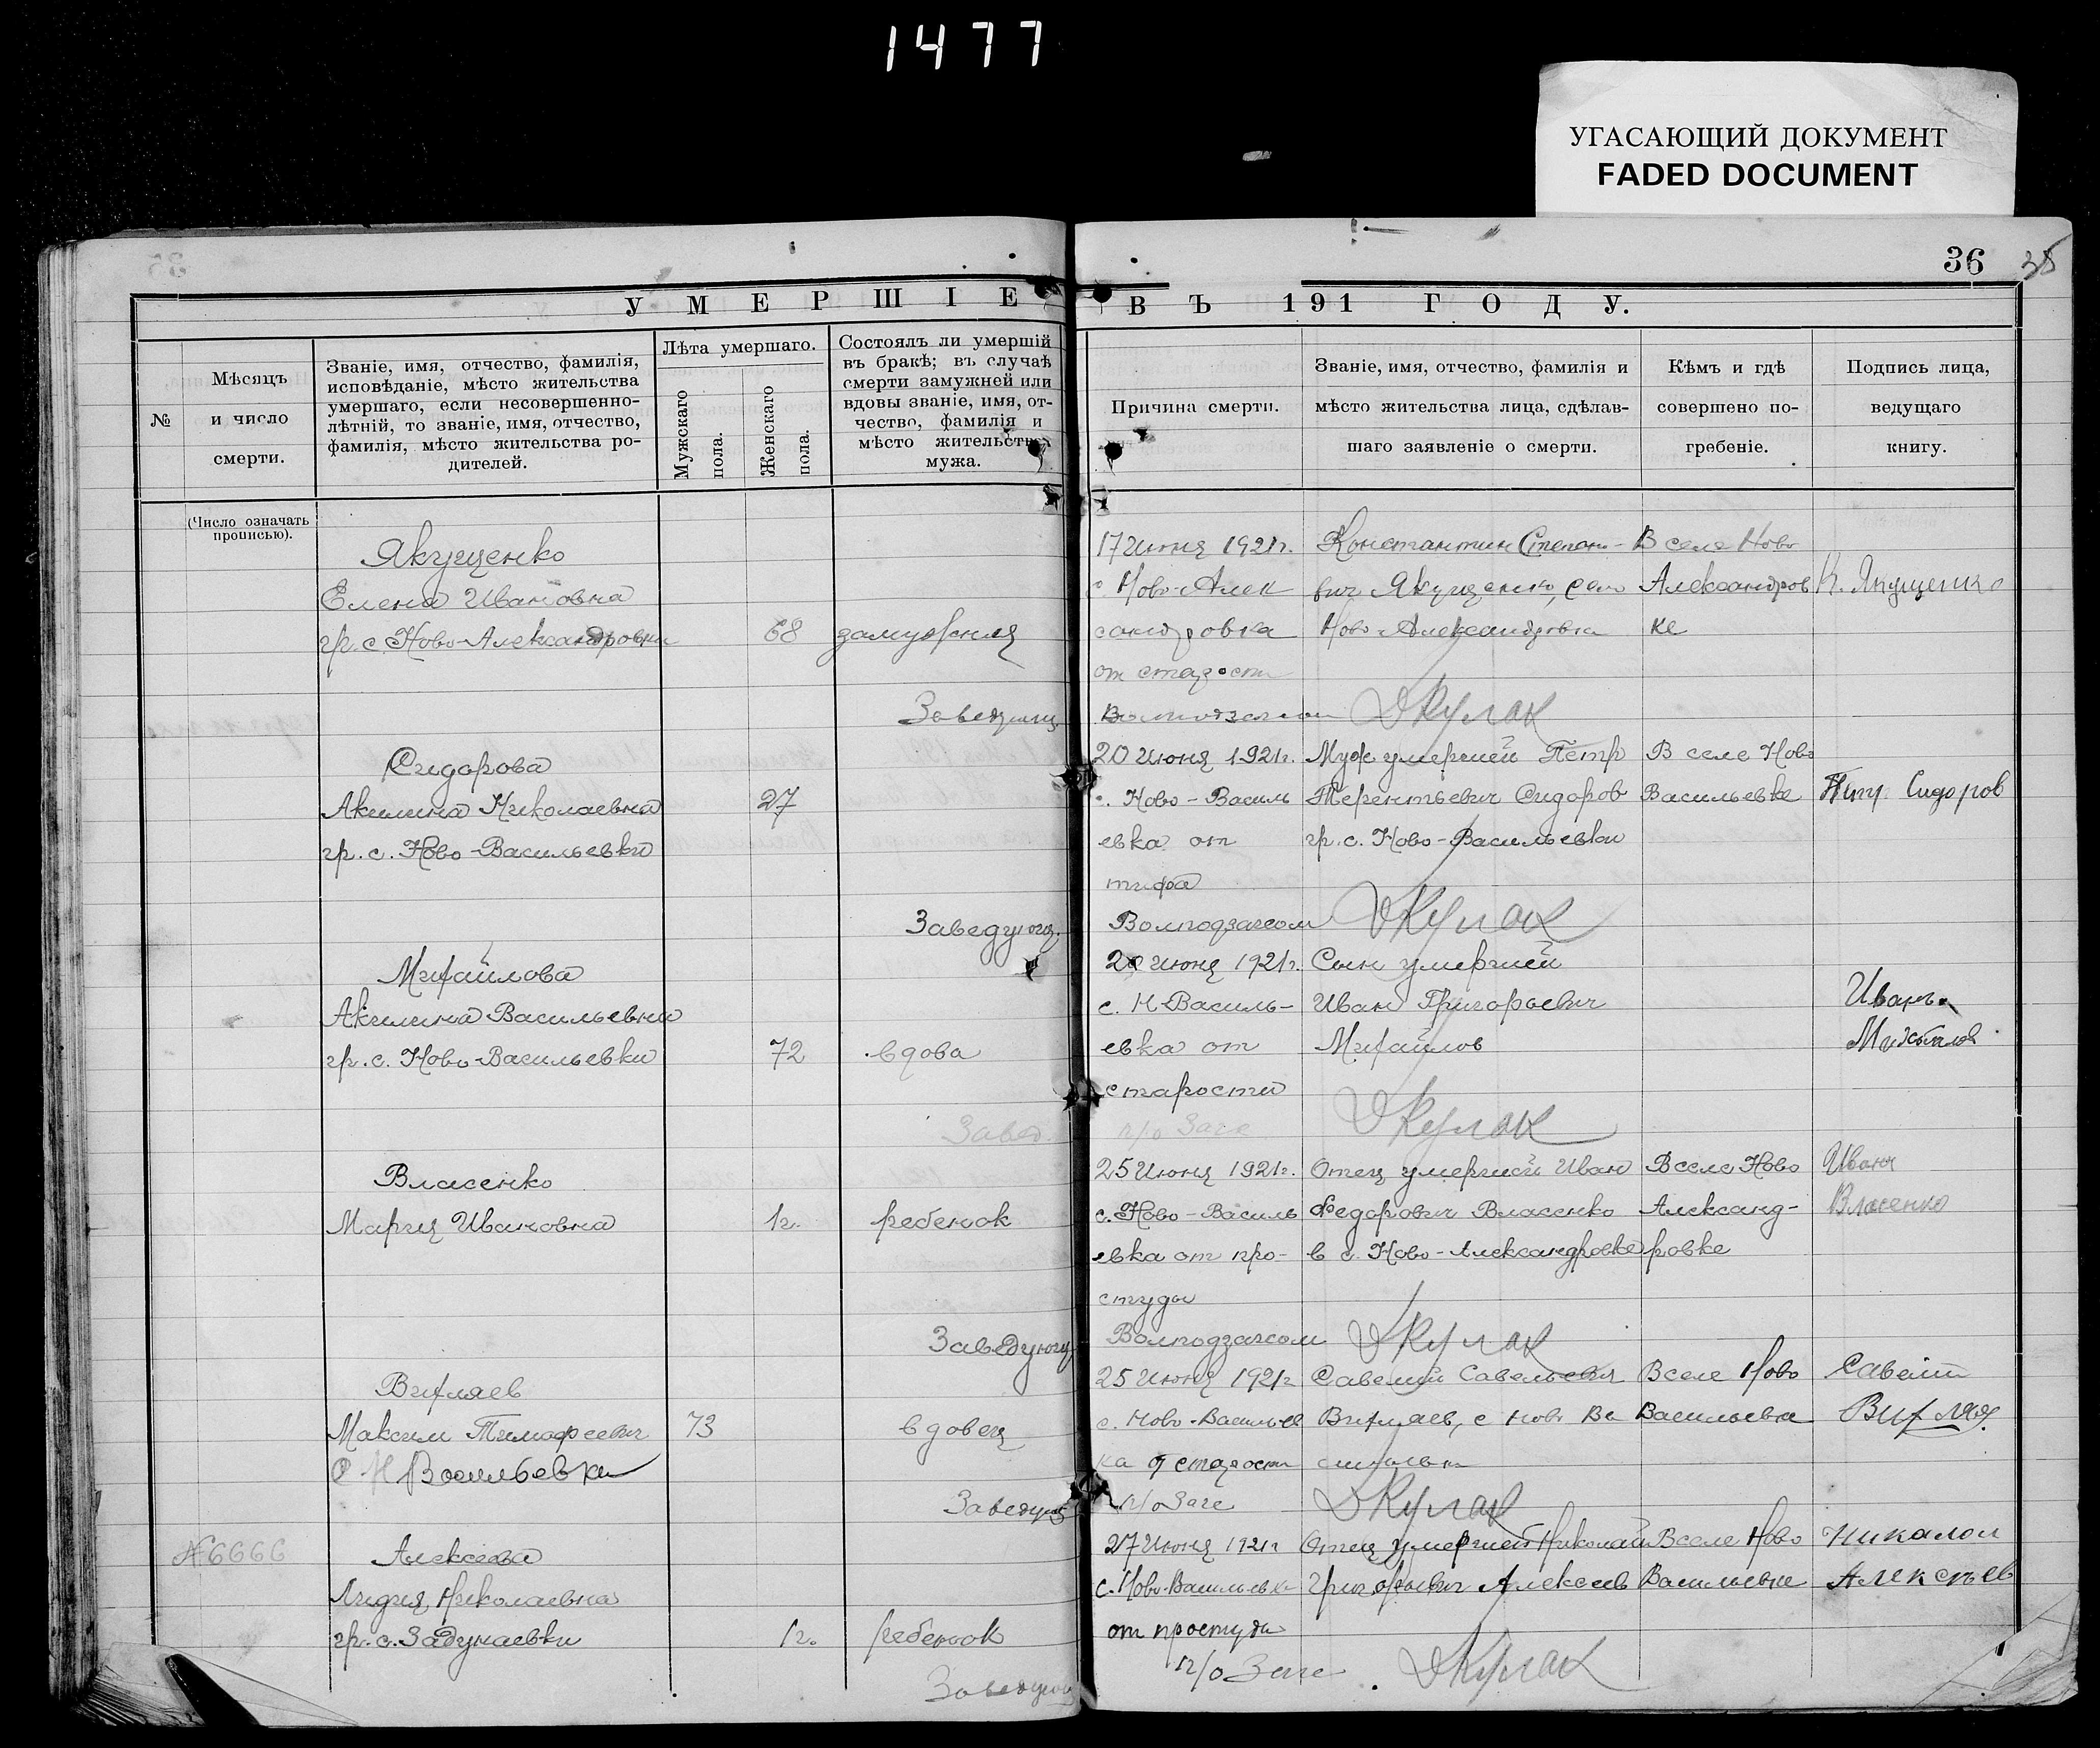 1477
УГАСАЮЩИЙ ДОКУМЕНТ
FADED DOCUMENT
36
УМЕРШІЕ ВЪ 191 ГОДУ.
№
Мѣсяцъ
и число
смерти.
Званіе, имя, отчество, фамилія,
исповѣданіе, мѣсто жительства
умершаго, если несовершенно-
лѣтній, то званіе, имя, отчество,
фамилія, мѣсто жительства ро-
дителей.
Лѣта умершаго.
Мужскаго
пола.
Женскаго
пола.
Состоялъ ли умершій
въ бракѣ; въ случаѣ
смерти замужней или
вдовы званіе, имя, от-
чество, фамилія и
мѣсто жительства
мужа.
Причина смерти.
Званіе, имя, отчество, фамилія и
мѣсто жительства лица, сдѣлав-
шаго заявленіе о смерти.
Кѣмъ и гдѣ
совершено по-
гребеніе.
Подпись лица,
ведущаго
книгу.
(Число означать
прописью).
Якущенко
Елена Ивановна
гр. с. Ново-Александровки
68
замужняя
17 июня 1921г.
с Ново-Алек
сандровка
от старости
Константин Степано-
вич Якущенко, село
Ново Александровка
В селе Ново
Александров
ке
К. Якущенко
Заведующ.
Волподзагсом
Кулак
Сидорова
Акилина Николаевна
27
гр. с. Ново-Васильевки
20 июня 1921г.
с. Ново-Василь
евка от
тифа
Муж умершей Петр
Терентьевич Сидоров
гр. с. Ново-Васильевки
В селе Ново
Васильевке
Сидоров
Заведующ.
Волподзагсом
Кулак
Михайлова
Акилина Васильевна
гр. с. Ново-Васильевки
72
вдова
июня 1921г.
с. Н-Василь-
евка от
старости
Сын умершей
Иван Григорьевич
Михайлов
Иванъ
Михайлов
Завед.
п/о Загс
Кулак
Власенко
Мария Ивановна
1г.
ребенок
25 июня 1921г.
с. Ново-Василь
евка от про-
студы
Отец умершей Иван
Федорович Власенко
в с. Ново-Александровке
В селе Ново
Александ-
ровке
Иван
Власенко
Заведующ
Волподзагсом
Кулак
Вифляев
Максим Тимофеевич
73
вдовец
С Н Васильевка
25 июня 1921г
с. Ново-Васильев
ка от старости
Савелий Савельевич
Вифляев, с Ново Ва
сильевка
В селе Ново
Васильевка
Заведующ
п/о Загс
Кулак
№6666
Алексеева
Лидия Николаевна
гр. с. Задунаевки
1г.
ребенок
27 июня 1921г
с. Ново-Васильевка
от простуды
Отец умершей Николай
Григорьевич Алексеев
В селе Ново
Васильевке
Николай
Алексѣев
Заведующ
п/о Загс
Кулак